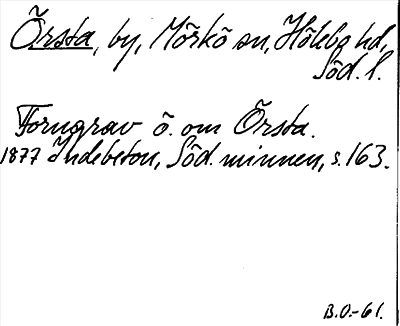 Örsta, by, Mörkö sn, Hölebo hd,
Söd. l.
Forngrav ö. om Örsta.
1877 Indebetou, Söd. minnen, s. 163.
B.O.-61.